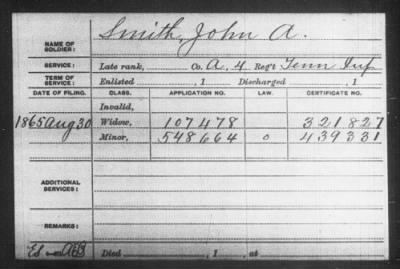 NAME OF SOLDIER: Smith, John A.
SERVICE: Late rank, Co. A, 4 Reg't Tenn Inf
TERM OF SERVICE: Enlisted , 1 Discharged , 1
DATE OF FILING. CLASS. APPLICATION NO. LAW. CERTIFICATE NO.
Invalid,
1865 Aug 30 Widow, 107478 321827
Minor, 548664 0 439331
ADDITIONAL SERVICES:
REMARKS:
Died , 1 , at